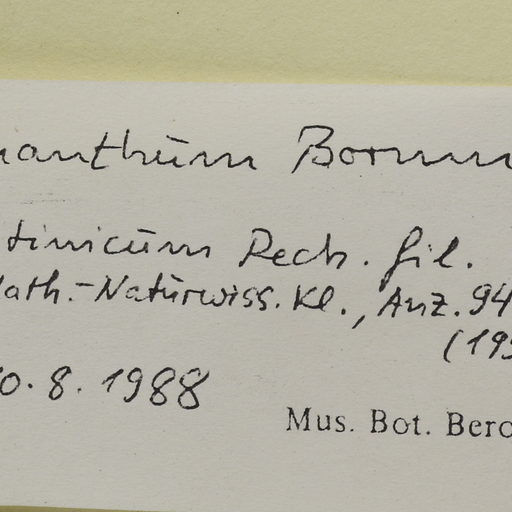 nanthum Bornm
tinicum Rech. fil.
Math.-Naturwiss. Kl., Anz. 94
(195
0.8.1988
Mus. Bot. Bero